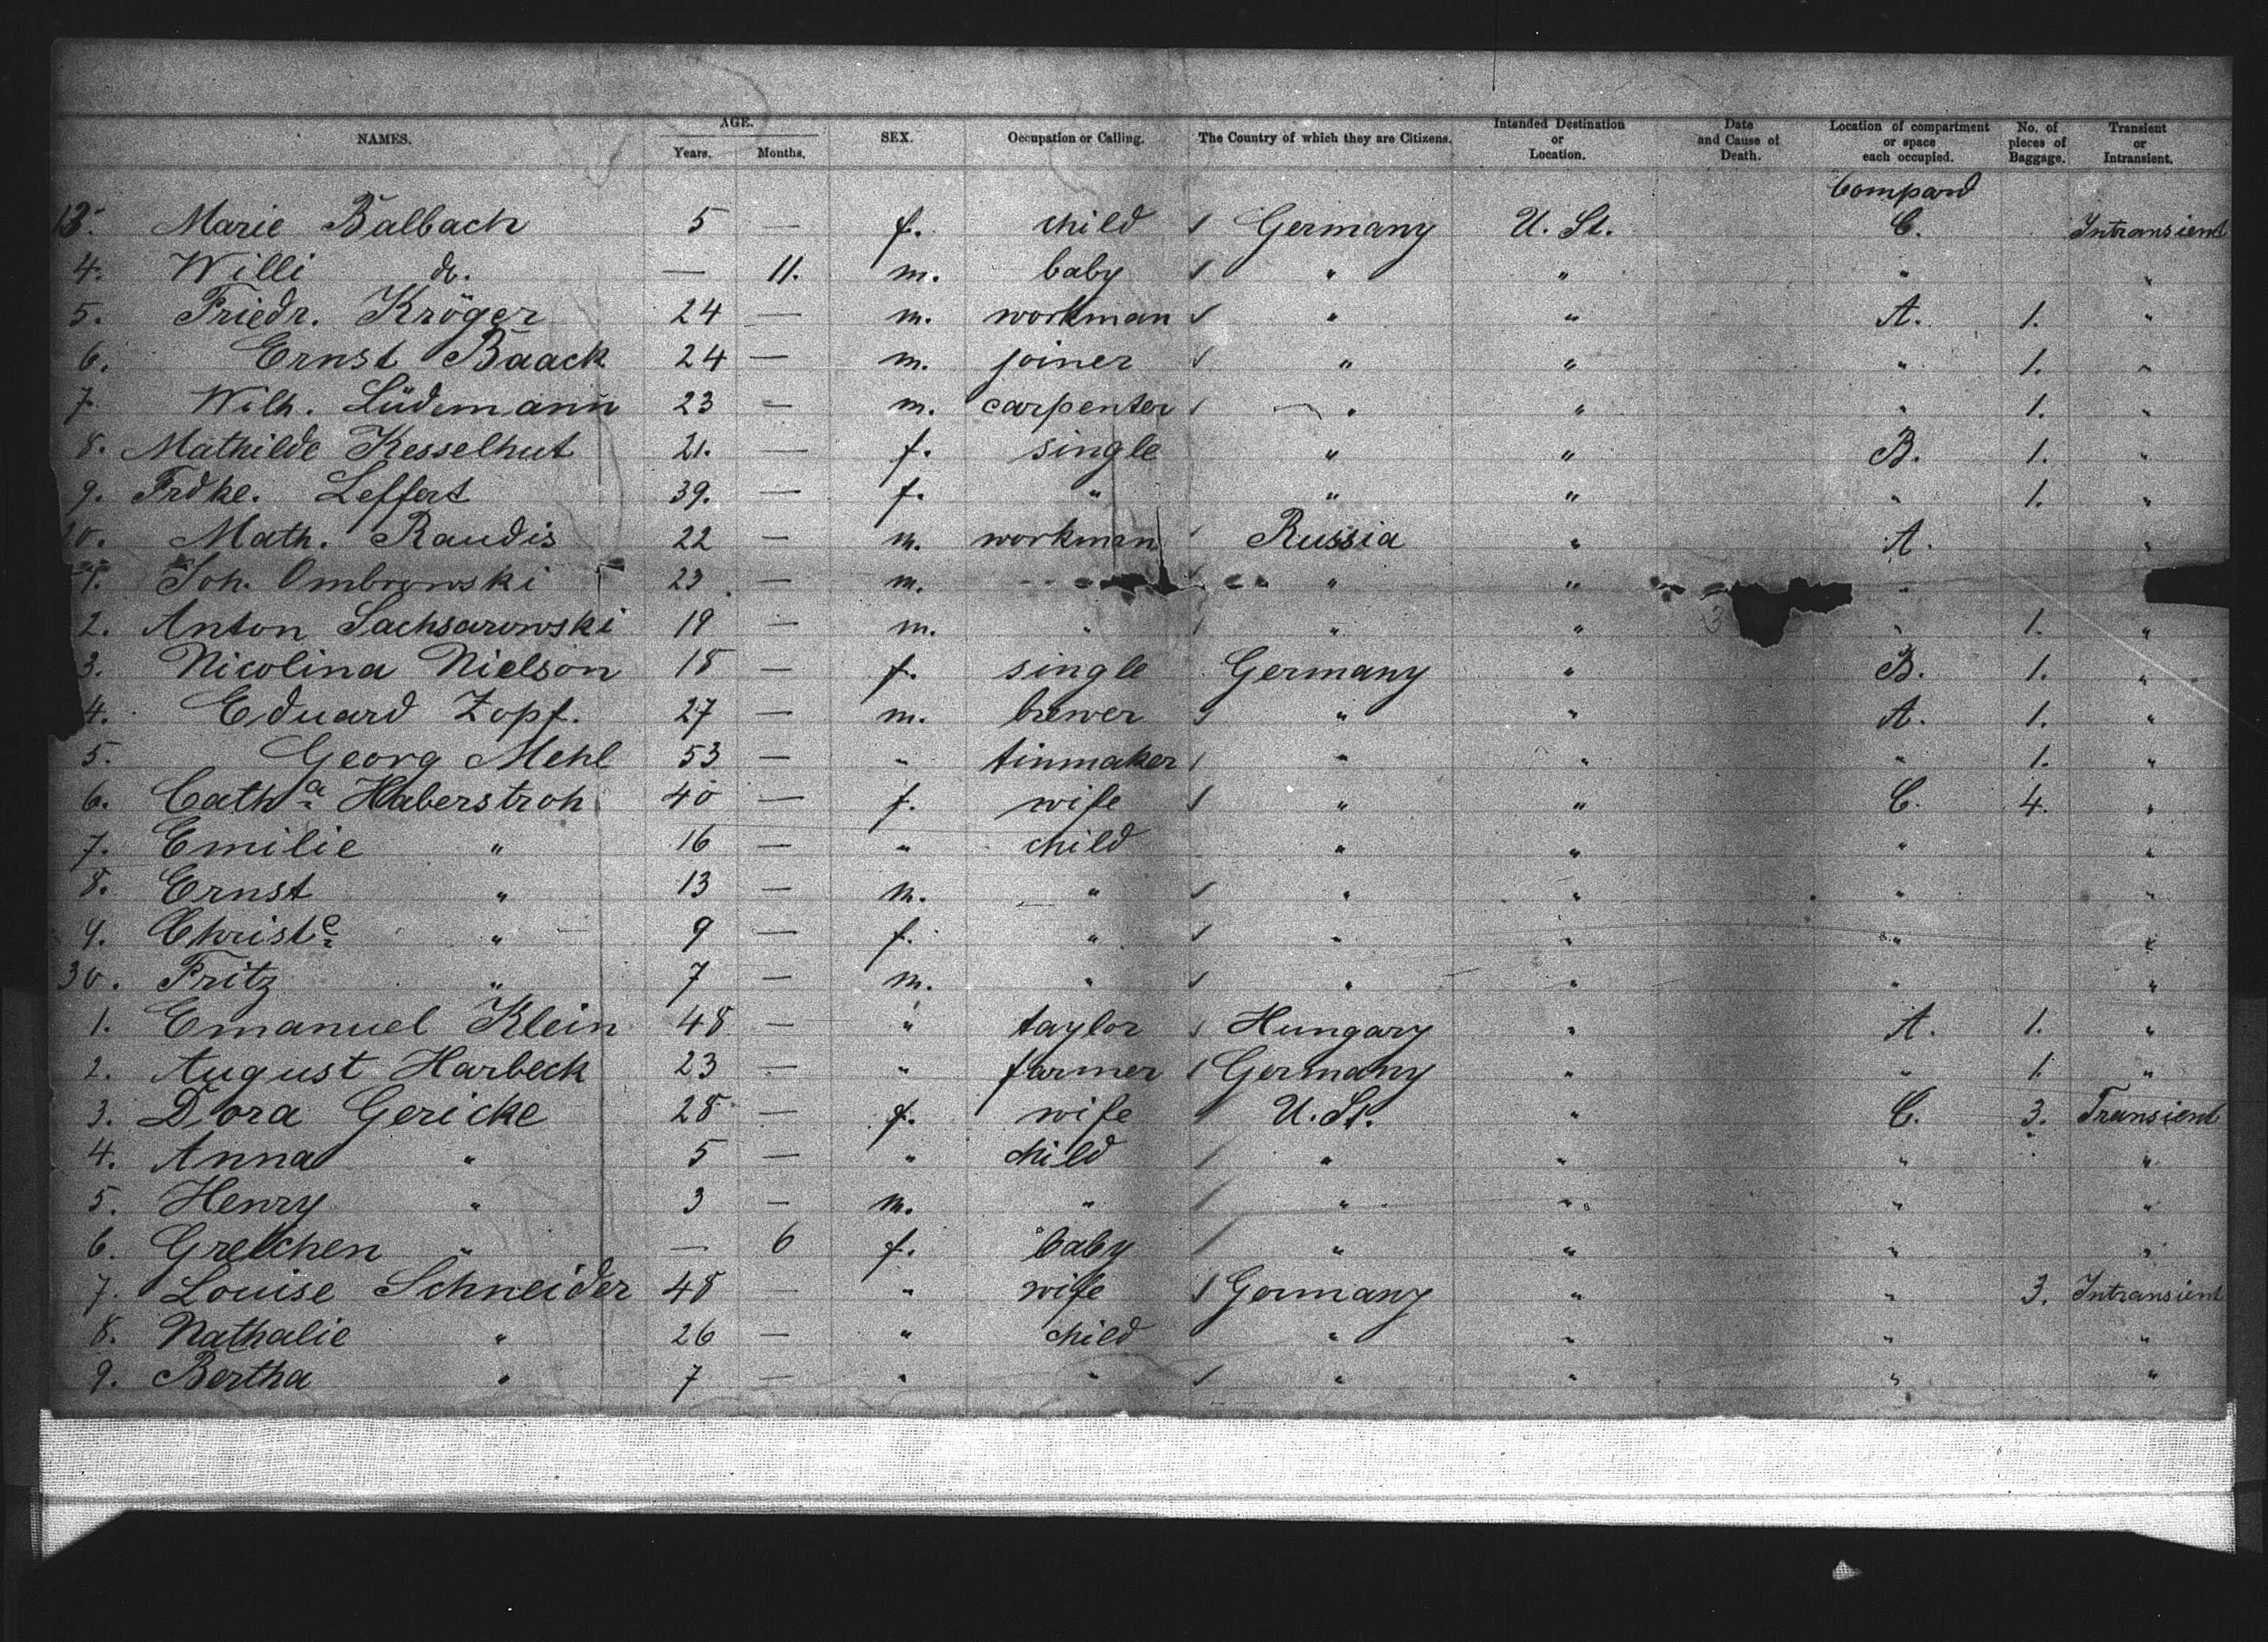 NAMES. AGE. Years. Months. SEX. Occupation or Calling. The Country of which they are Citizens. Intended Destination or Location. Date and Cause of Death. Location of compartment or space each occupied. No. of pieces of Baggage. Transient or Intransient.
Compard
13. Marie Balbach 5 — f. child Germany U. St. C. Intransient
4. Willi do. — 11. m. baby " " " "
5. Friedr. Kröger 24 — m. workman " " A. 1. "
6. Ernst Baack 24 — m. joiner " " " 1. "
7. Wilh. Lüdemann 23 — m. carpenter " " " 1. "
8. Mathilde Kesselhut 21. — f. single " " B. 1. "
9. Frdke. Leffert 39. — f. " " " " 1. "
20. Math. Raudis 22 — m. workman Russia " A. "
1. Joh. Ombrowski 23 — m. " " " "
2. Anton Sachsarowski 19 — m. " " " " 1. "
3. Nicolina Nielson 18 — f. single Germany " B. 1. "
4. Eduard Zopf. 27 — m. brewer " " A. 1. "
5. Georg Mehl 53 — " tinmaker " " " 1. "
6. Catha Haberstroh 40 — f. wife " " C. 4. "
7. Emilie " 16 — " child " " " "
8. Ernst " 13 — m. " " " " "
9. Christe " 9 — f. " " " " "
30. Fritz " 7 — m. " " " " "
1. Emanuel Klein 48 — " taylor Hungary " A. 1. "
2. August Harbeck 23 — " farmer Germany " " 1. "
3. Dora Gericke 28 — f. wife U. St. " C. 3. Transient
4. Anna " 5 — " child " " " "
5. Henry " 3 — m. " " " " "
6. Gretchen " — 6 f. baby " " " "
7. Louise Schneider 48 — " wife Germany " " 3. Intransient
8. Nathalie " 26 — " child " " " "
9. Bertha " 7 — " " " " " "